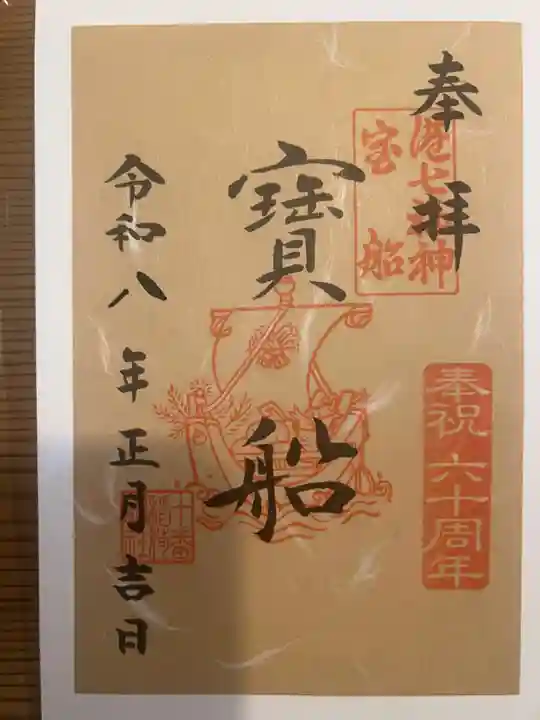 奉拝
港七福神
宝船
奉祝六十周年
寶船
令和八年正月吉日
十番稲荷神社